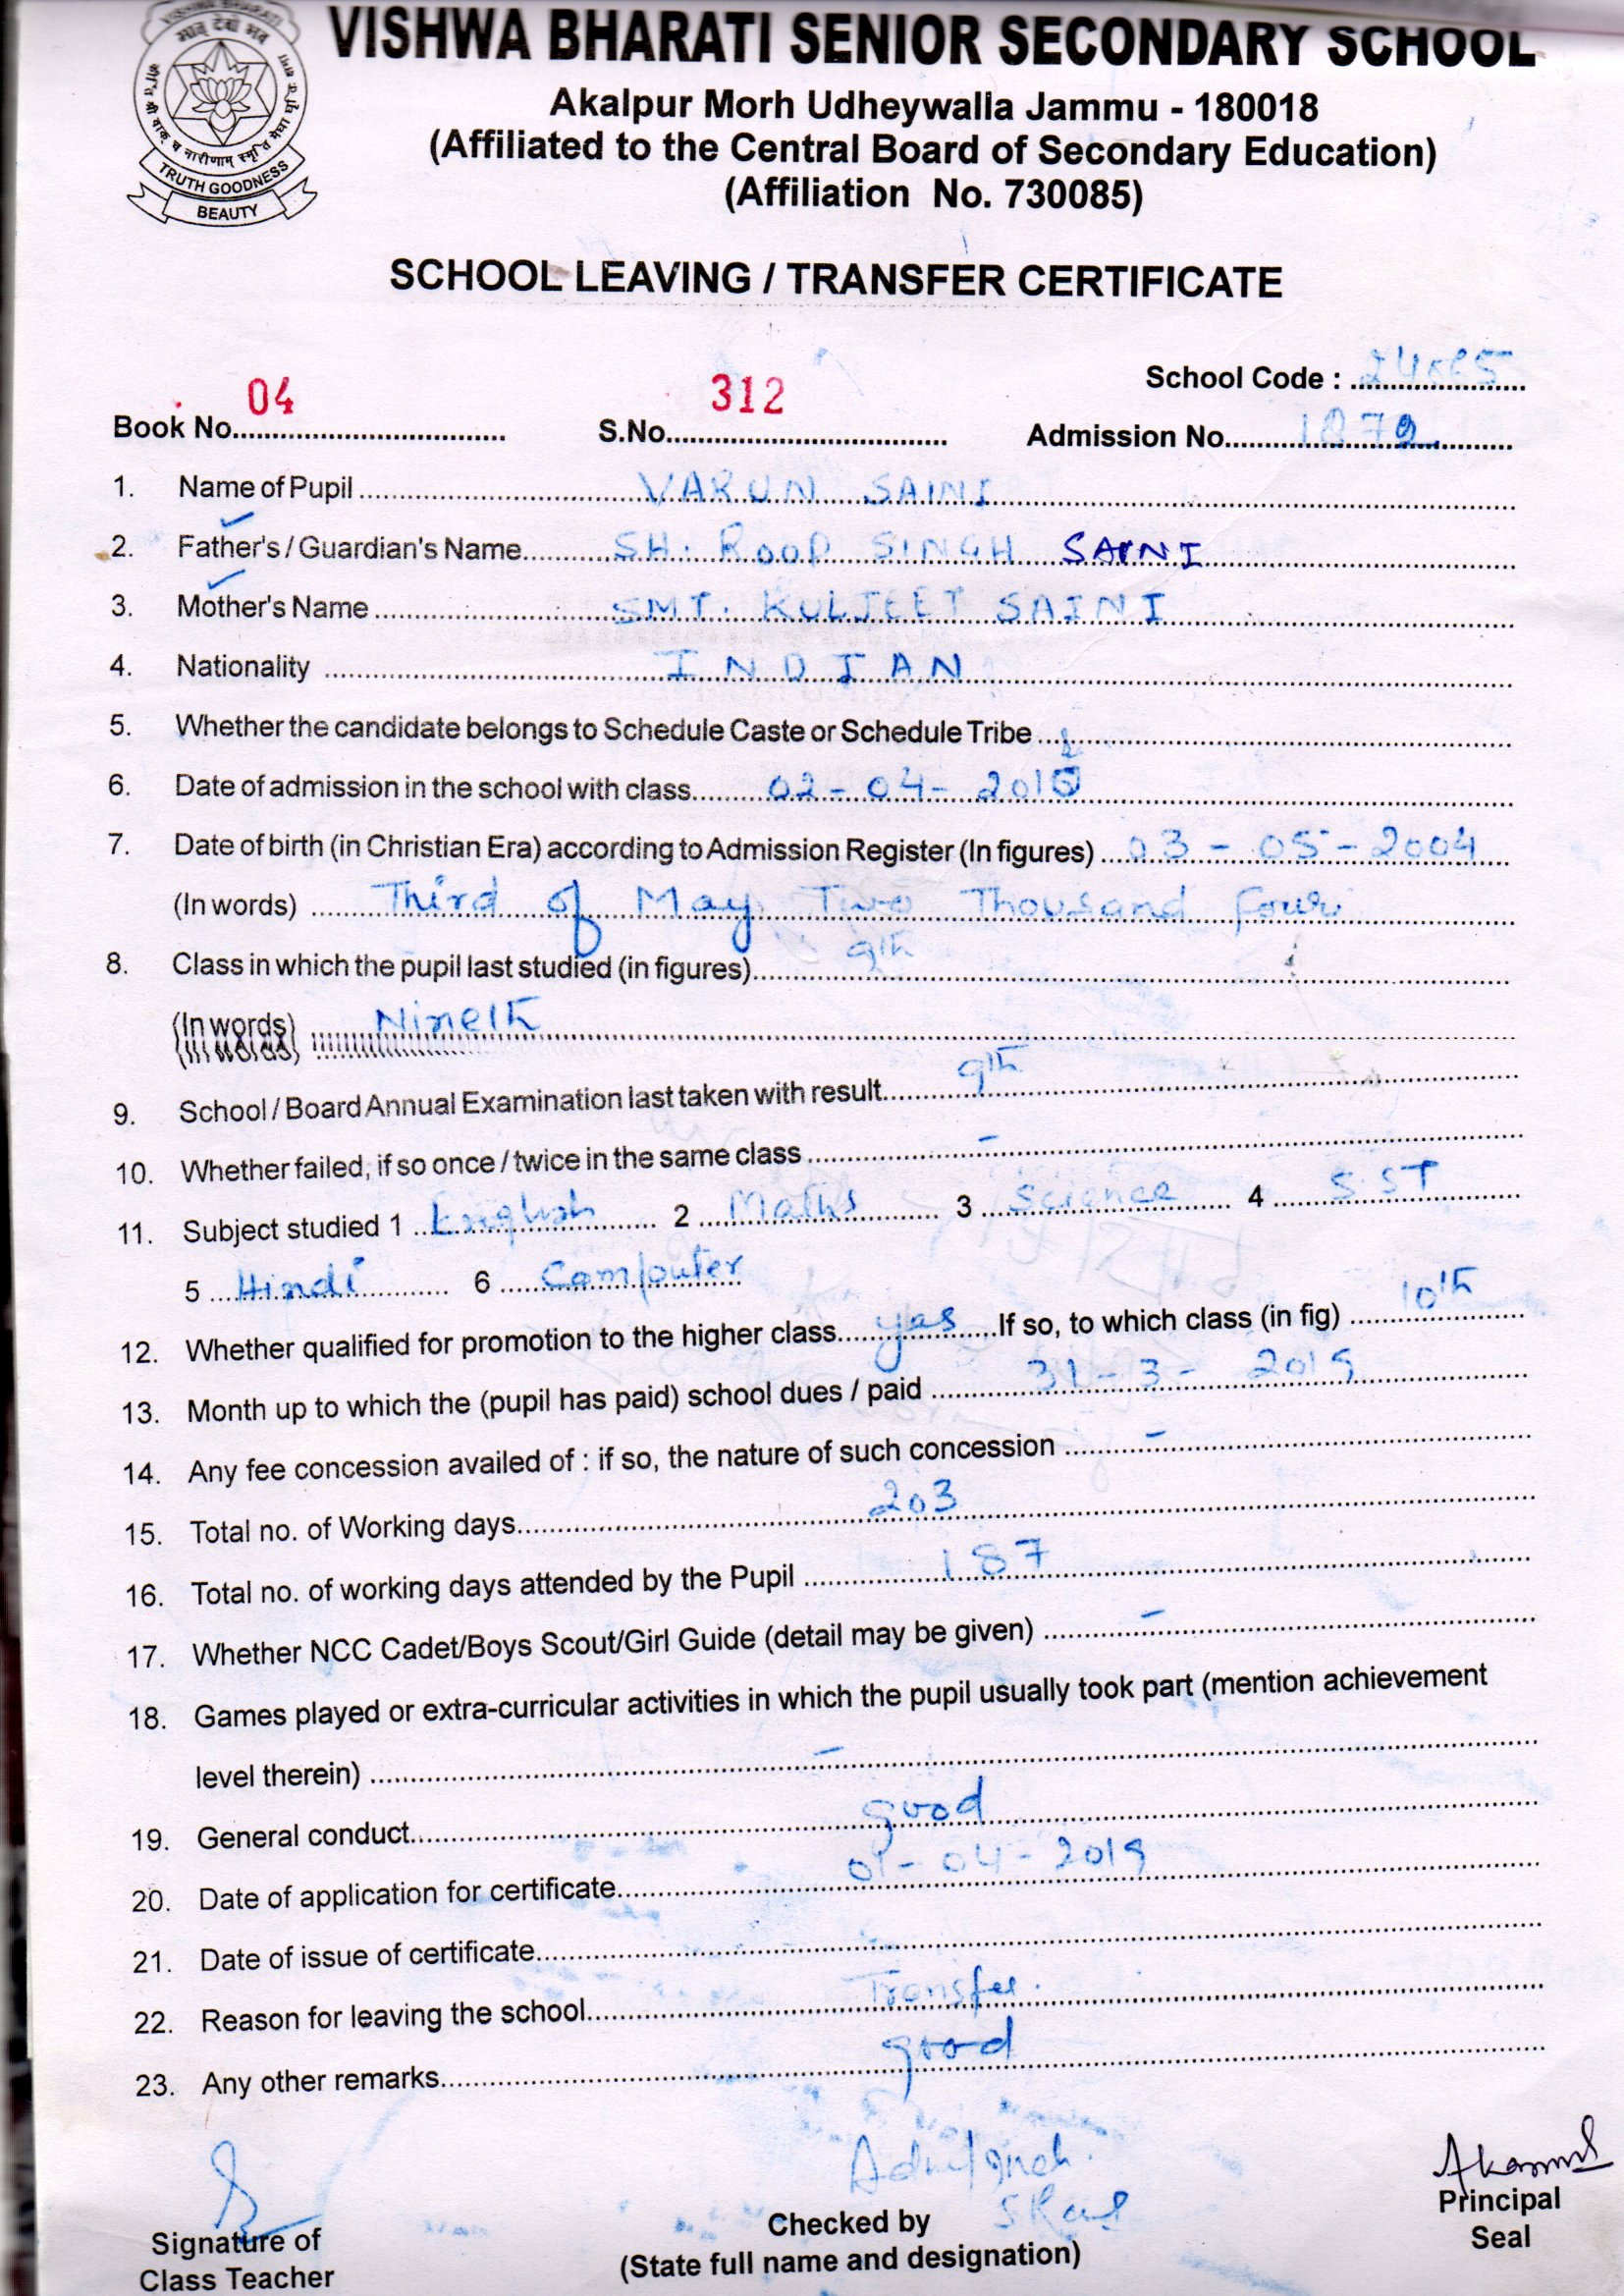 मातृ देवो भव
TRUTH GOODNESS
BEAUTY
VISHWA BHARATI SENIOR SECONDARY SCHOOL
Akalpur Morh Udheywalla Jammu - 180018
(Affiliated to the Central Board of Secondary Education)
(Affiliation No. 730085)
SCHOOL LEAVING / TRANSFER CERTIFICATE
School Code :
Book No. 04 S.No. 312 Admission No. 1872
1. Name of Pupil VARUN SAINI
2. Father's / Guardian's Name SH. ROOP SINGH SAINI
3. Mother's Name SMT. KULJEET SAINI
4. Nationality INDIAN
5. Whether the candidate belongs to Schedule Caste or Schedule Tribe
6. Date of admission in the school with class 02-04-
7. Date of birth (in Christian Era) according to Admission Register (In figures) 03-05-2004
(In words) Third of May Two Thousand Four
8. Class in which the pupil last studied (in figures) 9th
(In words) Nineth
9. School / Board Annual Examination last taken with result 9th
10. Whether failed, if so once / twice in the same class -
11. Subject studied 1 English 2 Maths 3 Science 4 S.ST
5 Hindi 6 Computer
12. Whether qualified for promotion to the higher class yas If so, to which class (in fig) 10th
13. Month up to which the (pupil has paid) school dues / paid 31-3-2019
14. Any fee concession availed of : if so, the nature of such concession -
15. Total no. of Working days 203
16. Total no. of working days attended by the Pupil 187
17. Whether NCC Cadet/Boys Scout/Girl Guide (detail may be given) -
18. Games played or extra-curricular activities in which the pupil usually took part (mention achievement
level therein) -
19. General conduct good
20. Date of application for certificate 01-04-2019
21. Date of issue of certificate
22. Reason for leaving the school Transfer.
23. Any other remarks good
Signature of
Class Teacher
Checked by
(State full name and designation)
Principal
Seal